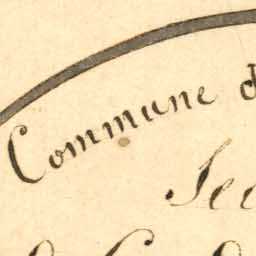 Commune d
Sec